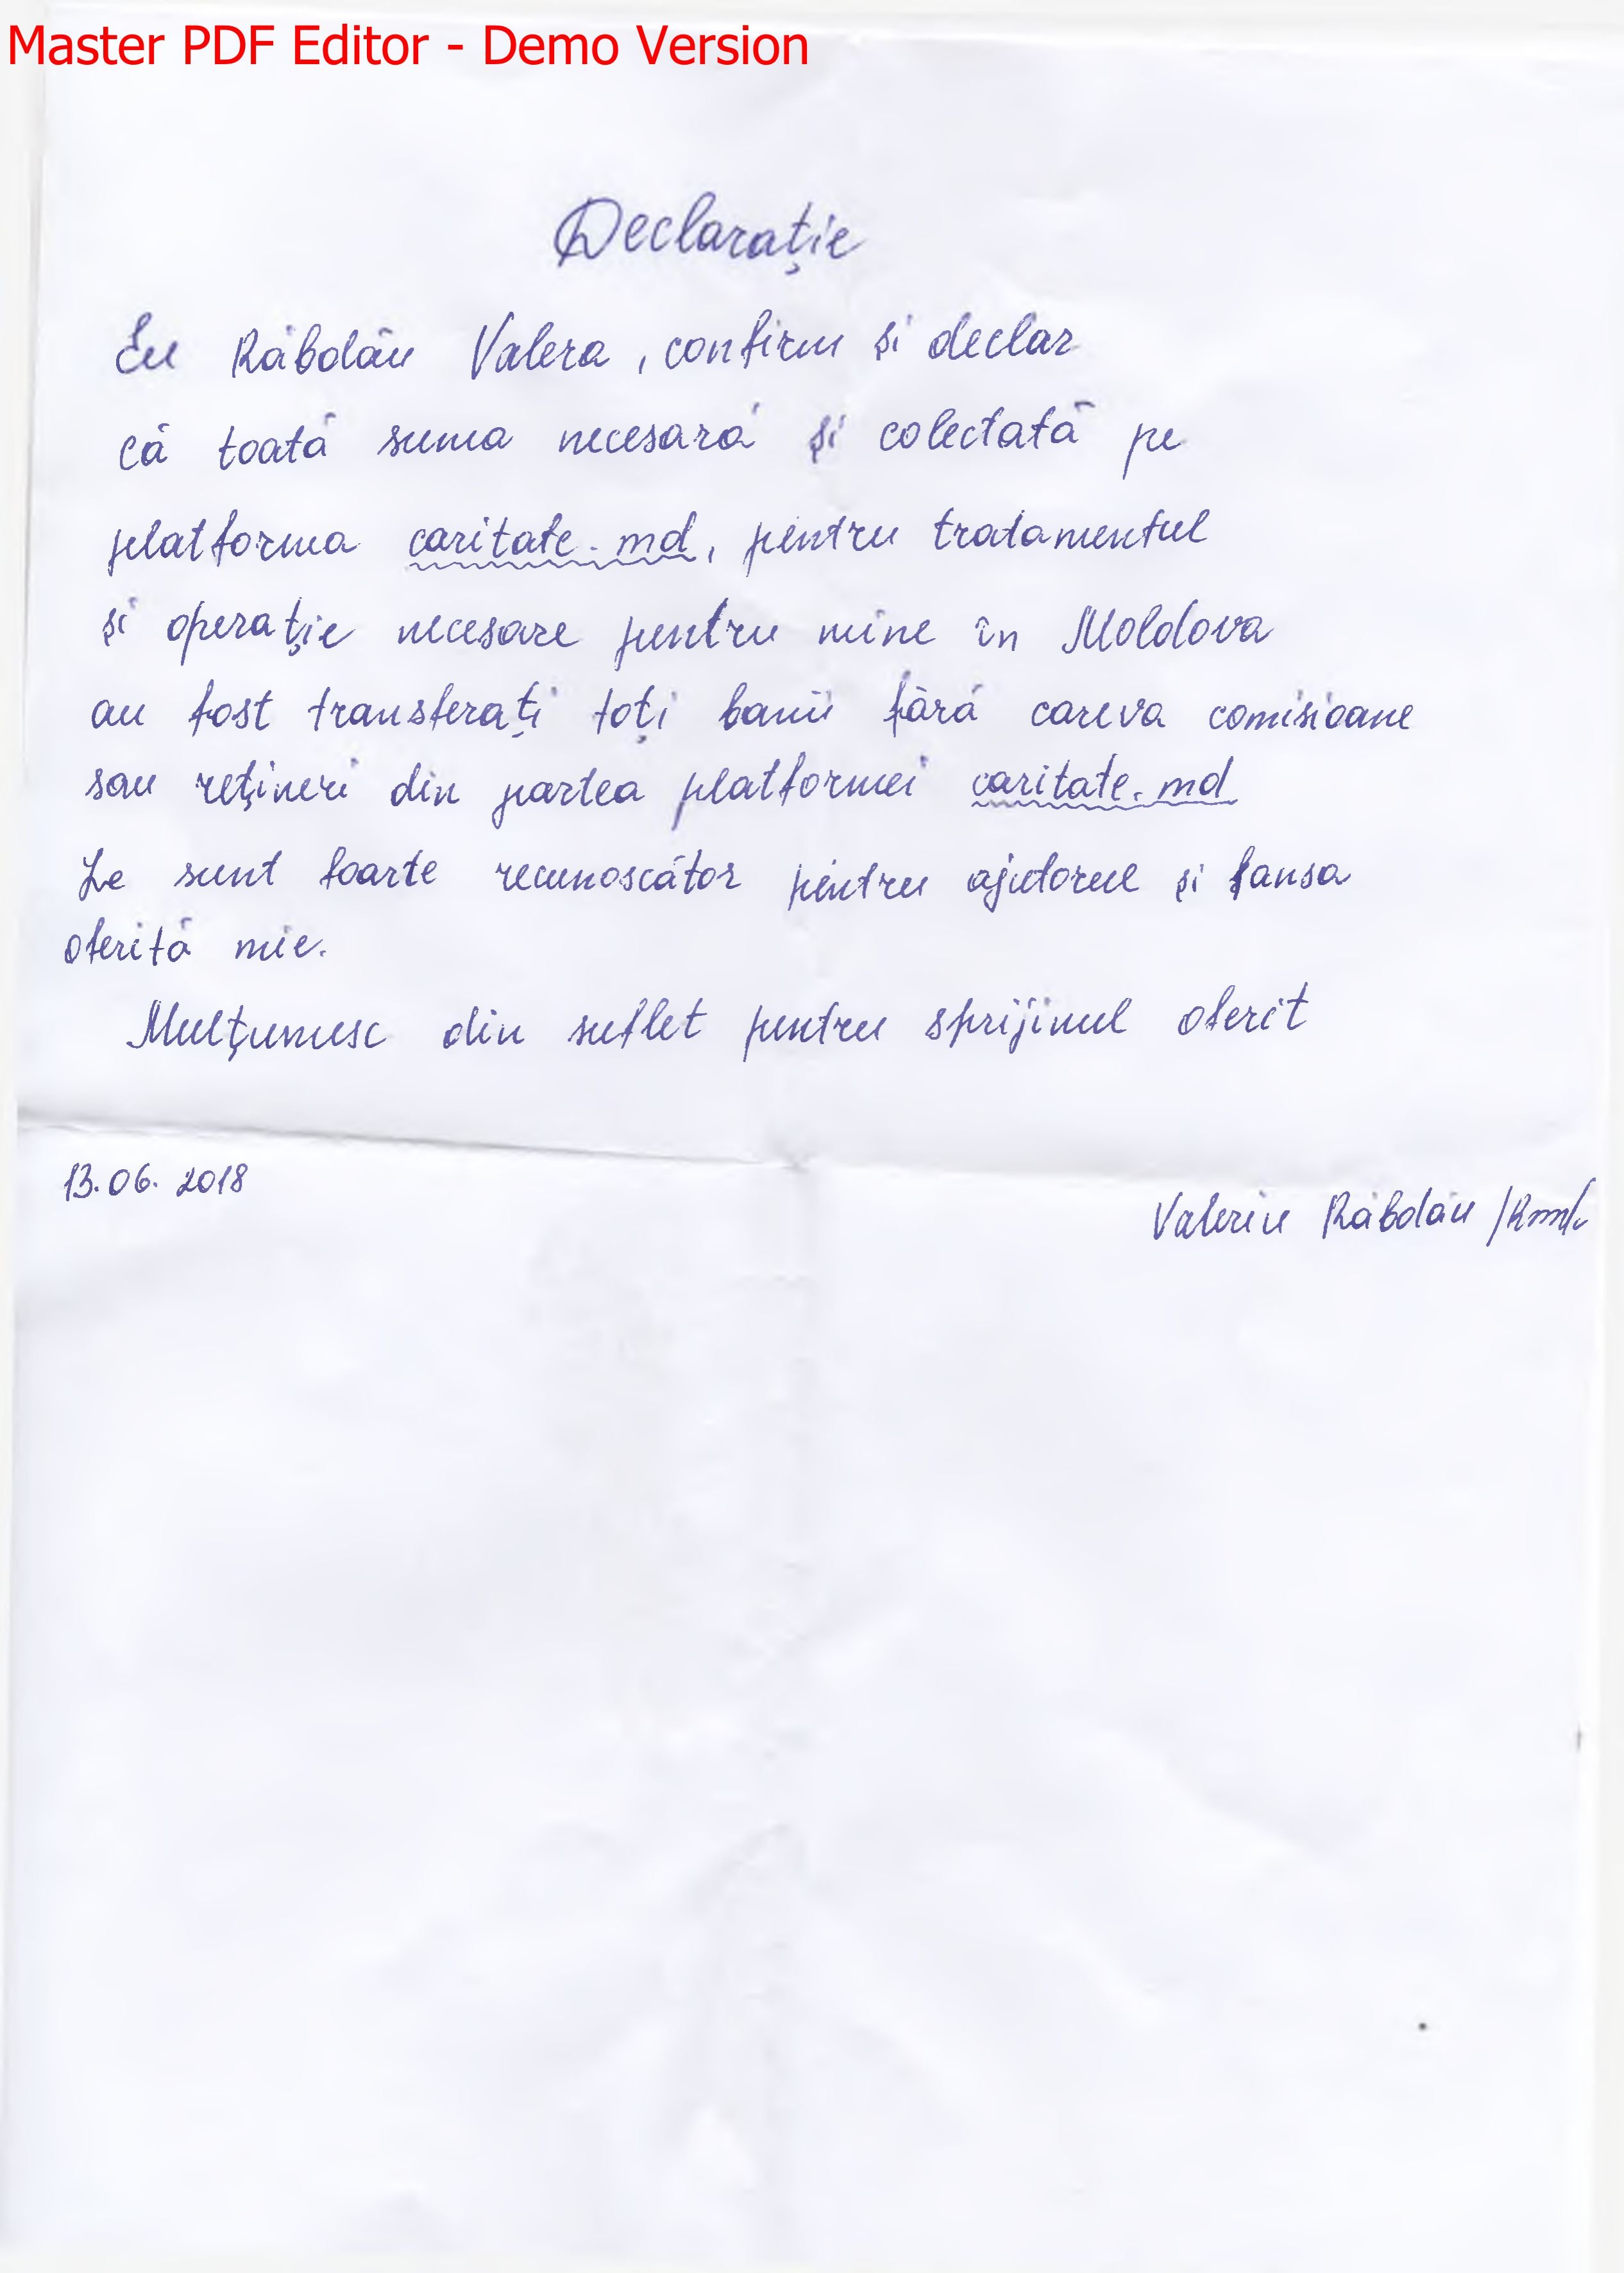 Master PDF Editor - Demo Version
Declarație
Eu Răbdău Valera, confirm și declar
că toată suma necesară și colectată pe
platforma caritate.md, pentru tratamentul
și operație necesare pentru mine în Moldova
au fost transferați toți banii fără careva comisioane
sau rețineri din partea platformei caritate.md
Le sunt foarte recunoscător pentru ajutorul și șansa
oferită mie.
Mulțumesc din suflet pentru sprijinul oferit
13.06.2018
Valeriu Răbdău